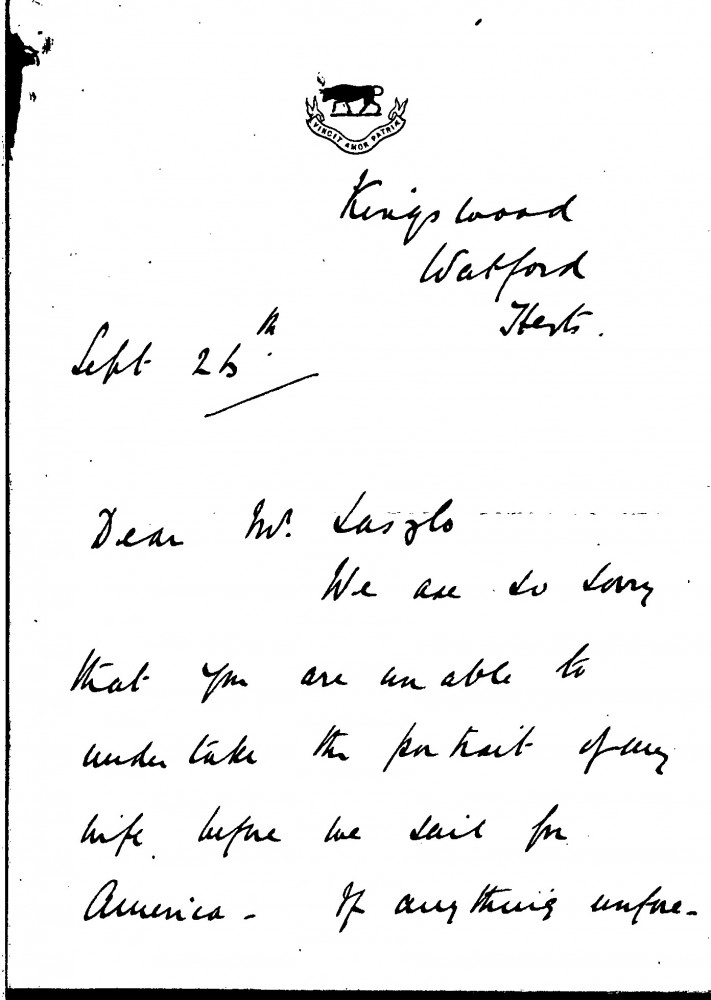 VINCIT AMOR PATRIÆ
Kingswood
Watford
Herts.
Sept 26th.
Dear Mr. Laszlo
We are so sorry
that you are unable to
undertake the portrait of my
wife before we sail for
America - If anything unfore-